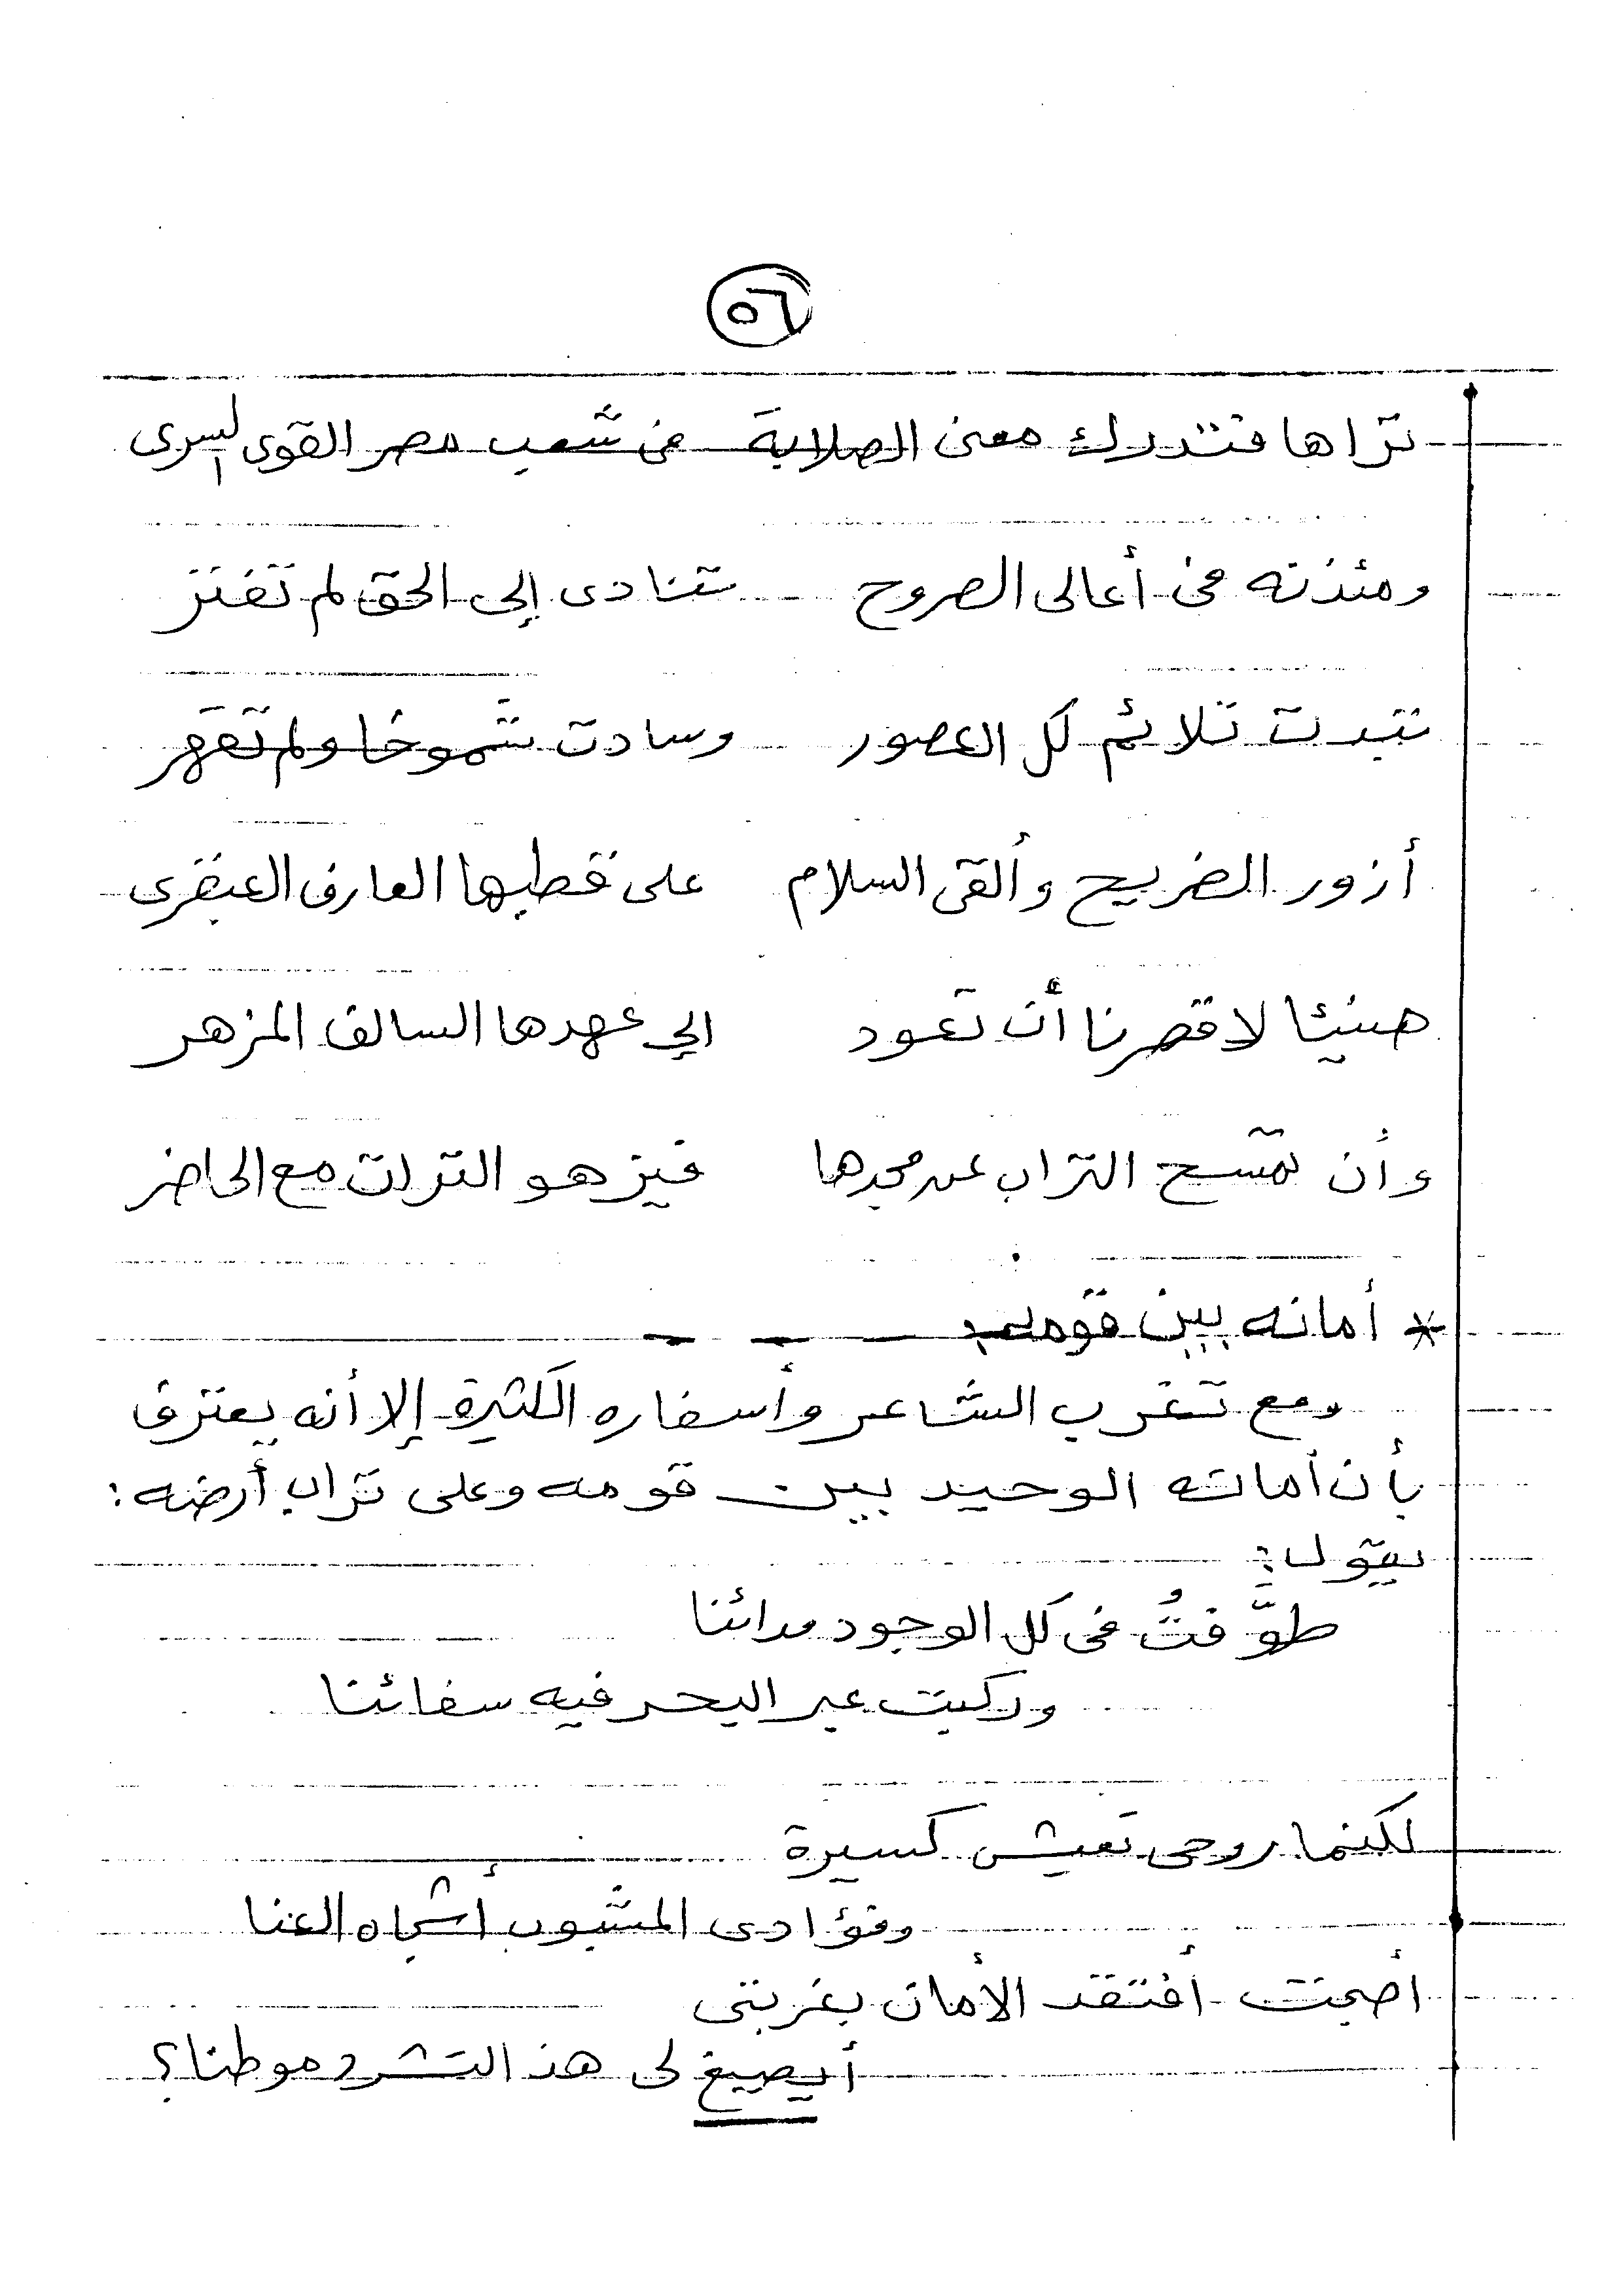 ٥٦
تراها فتدرك معنى الصلابة في شعب مصر القوى السرى
ومئذنه في أعالى الصروح تنادى إلى الحق لم تفتر
تبدت تلائم كل العصور وسادت شموخا ولم تقهر
أزور الضريح وألقى السلام على قطبها العارف العبقرى
هنيئا لاقصرنا أن تعود الي عهدها السالف المزهر
وأن تمسح التراب عن مجدها فيزهو التراث مع الحاضر
* أمانه بين قومه:
ومع تغرب الشاعر وأسفاره الكثيرة إلا أنه يعترف
بأن أمانه الوحيد بين قومه وعلى تراب أرضه:
يقول:
طوَّفتُ في كل الوجود مدائنا
وركبت عبر البحر فيه سفائنا
لكنما روحى تعيش كسيرة
وفؤادى المشبوب أشجاه العنا
أضحت أفتقد الأمان بغربتى
أيصيغ لى هذ التشرد موطنا؟